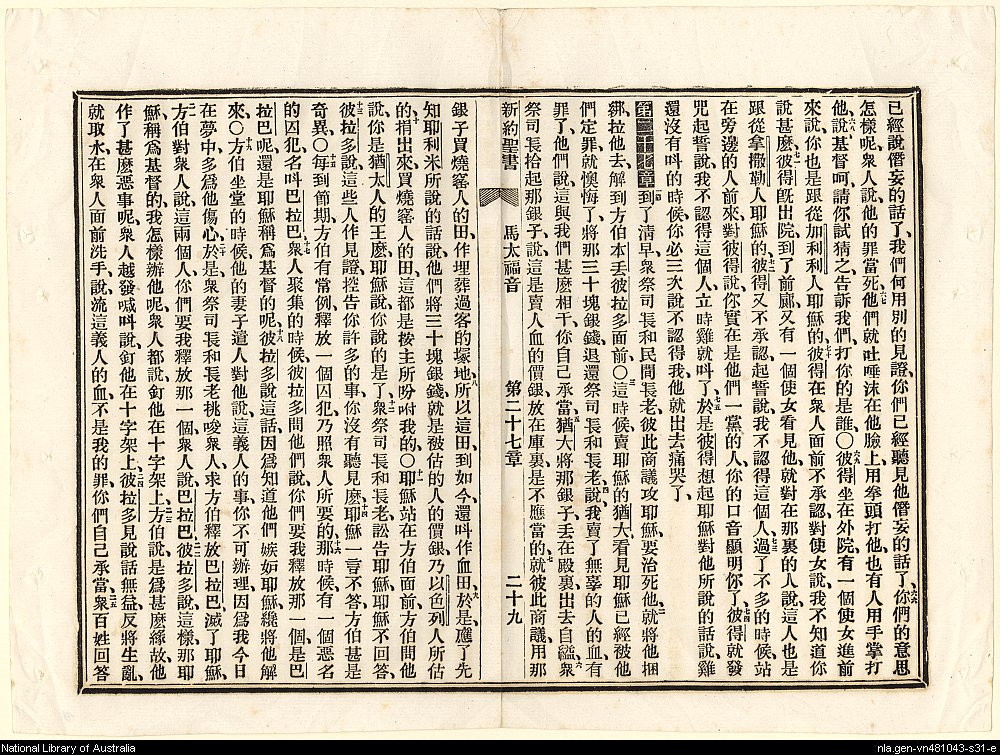 已經說僭妄的話了、我們何用別的見證、你們已經聽見他僭妄的話了、你們的意思
怎樣呢、衆人說、他的罪當死、他們就吐唾沫在他臉上、用拳頭打他、也有人用手掌打
他、說基督呵、請你試猜之告訴我們、打你的是誰、○彼得坐在外院、有一個使女進前
來說、你也是跟從加利利人耶穌的、彼得在衆人面前不承認、對使女說、我不知道你
說甚麽、彼得旣出院到了前廊、又有一個使女看見他、就對在那裏的人說、這人也是
跟從拿撒勒人耶穌的、彼得又不承認、起誓說、我不認得這個人、過了不多的時候、站
在旁邊的人前來、對彼得說、你實在是他們一黨的人、你的口音顯明你了、彼得就發
咒起誓說、我不認得這個人、立時雞就呌了、於是彼得想起耶穌對他所說的話說、雞
還沒有呌的時候、你必三次說不認得我、他就出去痛哭了、
第二十七章 到了淸早、衆祭司長和民間長老、彼此商議攻耶穌、要治死他、就將他捆
綁拉他去、解到方伯本丟彼拉多面前、○這時候賣耶穌的猶大、看見耶穌已經被他
們定罪、就懊悔了、將那三十塊銀錢、退還祭司長和長老、說、我賣了無辜的人的血、有
罪了、他們說、這與我們甚麽相干、你自己承當、猶大將那銀子丟在殿裏、出去自縊、衆
祭司長拾起那銀子說、這是賣人血的價銀、放在庫裏是不應當的、就彼此商議、用那
新約聖書 馬太福音 第二十七章 二十九
銀子買燒窰人的田、作埋葬過客的塚地、所以這田到如今還呌作血田、於是應了先
知耶利米所說的話說、他們將三十塊銀錢、就是被估的人的價銀、乃以色列人所估
的、捐出來、買燒窰人的田、這都是按主所吩咐我的、○耶穌站在方伯面前、方伯問他
說、你是猶太人的王麽、耶穌說、你說的是了、衆祭司長和長老訟告耶穌、耶穌不回答、
彼拉多說、這些人作見證控告你許多的事、你沒有聽見麽、耶穌一言不答、方伯甚是
奇異、○每到節期、方伯有常例、釋放一個囚犯、乃照衆人所要的、那時候有一個惡名
的囚犯、名呌巴拉巴、衆人聚集的時候、彼拉多問他們說、你們要我釋放那一個、是巴
拉巴呢、還是耶穌稱爲基督的呢、彼拉多說這話、因爲知道他們嫉妬耶穌、纔將他解
來、○方伯坐堂的時候、他的妻子道人對他說、這義人的事、你不可辦理、因爲我今日
在夢中多爲他傷心、於是衆祭司長和長老挑唆衆人、求方伯釋放巴拉巴、滅了耶穌、
方伯對衆人說、這兩個人、你們要我釋放那一個、衆人說、巴拉巴、彼拉多說、這樣、那耶
穌稱爲基督的、我怎樣辦他呢、衆人都說、釘他在十字架上、方伯說、是爲甚麽緣故、他
作了甚麽惡事呢、衆人越發喊呌說、釘他在十字架上、彼拉多見說話無益、反將生亂、
就取水、在衆人面前洗手說、流這義人的血、不是我的罪、你們自己承當、衆百姓回答
National Library of Australia
nla.gen-vn481043-s31-e